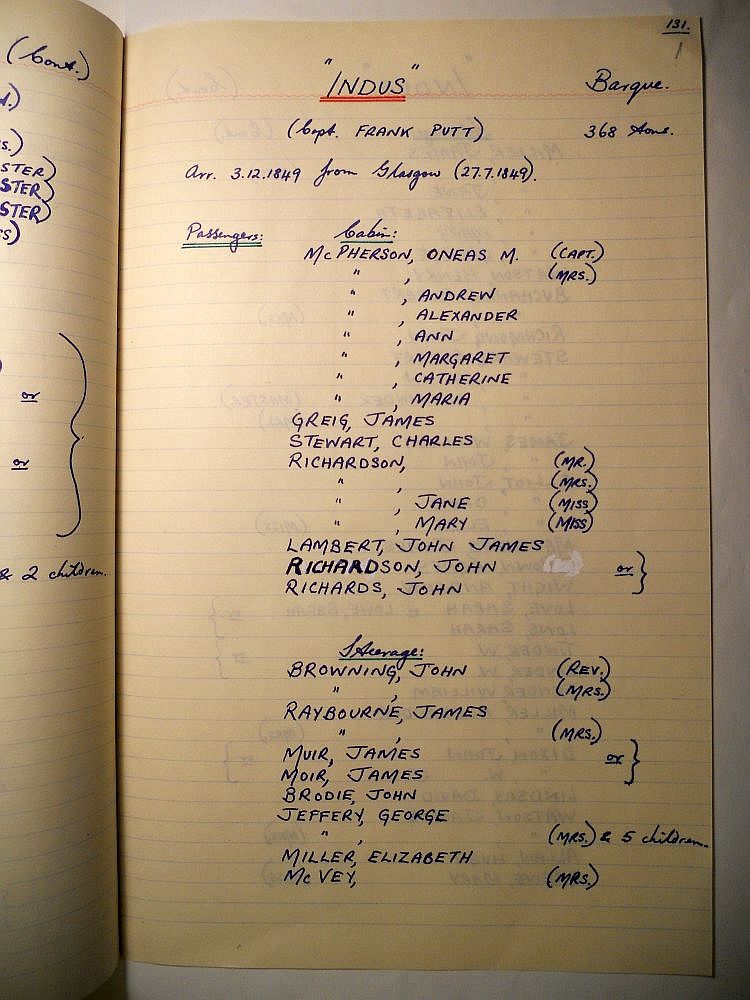 (Cont.)
STER)
STER)
STER)
or
or
& 2 children.
131.
"INDUS"
Barque.
(Capt. FRANK PUTT)
368 tons.
Arr. 3.12.1849 from Glasgow (27.7.1849).
Passengers: Cabin:
McPHERSON, ONEAS M. (CAPT.)
" , (MRS.)
" , ANDREW
" , ALEXANDER
" , ANN
" , MARGARET
" , CATHERINE
" , MARIA
GREIG, JAMES
STEWART, CHARLES
RICHARDSON, (MR.)
" , (MRS.)
" , JANE (MISS)
" , MARY (MISS)
LAMBERT, JOHN JAMES
RICHARDSON, JOHN or }
RICHARDS, JOHN
Steerage:
BROWNING, JOHN (REV.)
" , (MRS.)
RAYBOURNE, JAMES
" , (MRS.)
MUIR, JAMES or }
MOIR, JAMES
BRODIE, JOHN
JEFFERY, GEORGE
" , (MRS.) & 5 children.
MILLER, ELIZABETH
McVEY, (MRS.)